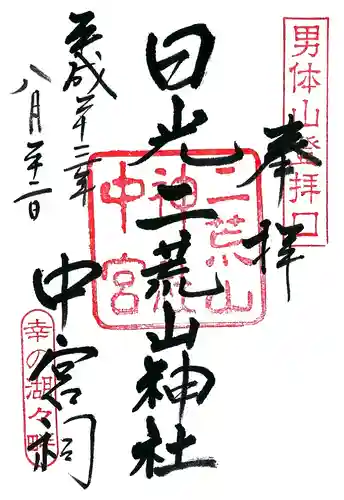 男体山登拝口
奉拝
日光二荒山神社
中宮祠
二荒山
神社
中宮
平成廿三年
八月廿二日
幸の湖々畔